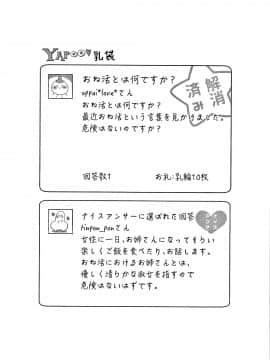 YAPOO!乳袋
おね活とは何ですか?
oppai*love*さん
おね活とは何ですか?
最近おね活という言葉を見かけました。
危険はないのですか?
解消済み
回答数1
お礼:乳輪10枚
ナイスアンサーに選ばれた回答
tinpon_ponさん
女性に一日、お姉さんになってもらい
楽しくご飯を食べたり、お話します。
おね活におけるお姉さんとは、
優しく清らかな淑女を指すので
危険はないはずです。